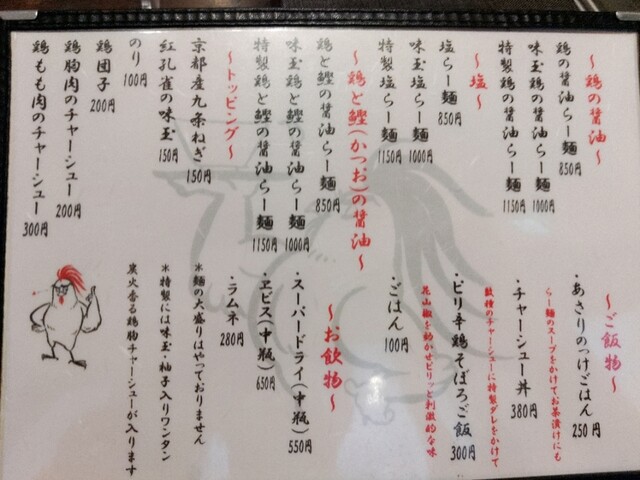 ～鶏の醤油～
鶏の醤油らー麺 850円
味玉鶏の醤油らー麺 1000円
特製鶏の醤油らー麺 1150円
～塩～
塩らー麺 850円
味玉塩らー麺 1000円
特製塩らー麺 1150円
～鶏と鰹(かつお)の醤油～
鶏と鰹の醤油らー麺 850円
味玉鶏と鰹の醤油らー麺 1000円
特製鶏と鰹の醤油らー麺 1150円
～トッピング～
京都産九条ねぎ 150円
紅孔雀の味玉 150円
のり 100円
鶏団子 200円
鶏胸肉のチャーシュー 200円
鶏もも肉のチャーシュー 300円
～ご飯物～
・あさりのっけごはん 250円
らー麺のスープをかけてお茶漬けにも
・チャーシュー丼 380円
数種のチャーシューに特製ダレをかけて
・ピリ辛鶏そぼろご飯 300円
花山椒を効かせピリッと刺激的な味
・ごはん 100円
～お飲物～
・スーパードライ(中瓶) 550円
・ヱビス(中瓶) 650円
・ラムネ 280円
＊麺の大盛りはやっておりません
＊特製には味玉・柚子入りワンタン
炭火香る鶏胸チャーシューが入ります